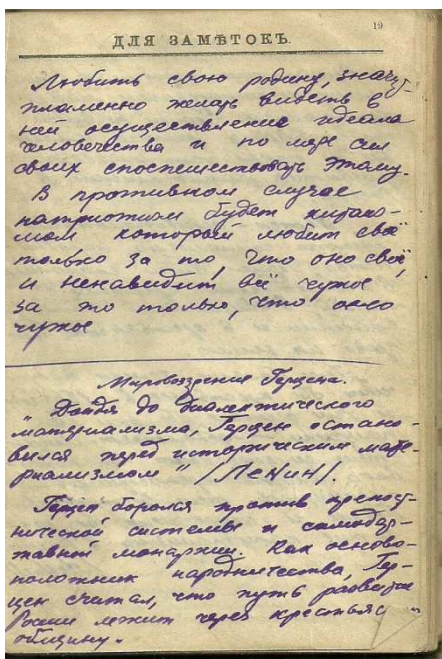 19
ДЛЯ ЗАМѢТОКЪ.
Любить свою родину, значит
пламенно желать видеть в
ней осуществление идеала
человечества и по мере сил
своих споспешествовать этому.
В противном случае
патриотизм будет китаиз-
мом, который любит своё
только за то, что оно своё,
и ненавидит всё чужое
за то только, что оно
чужое
Мировоззрение Герцена.
„Дойдя до диалектического
материализма, Герцен остано-
вился перед историческим мате-
риализмом" /Ленин/.
Герцен боролся против крепост-
нической системы и самодер-
жавной монархии. Как осново-
положник народничества, Гер-
цен считал, что путь развития
России лежит через крестьянс
общину.